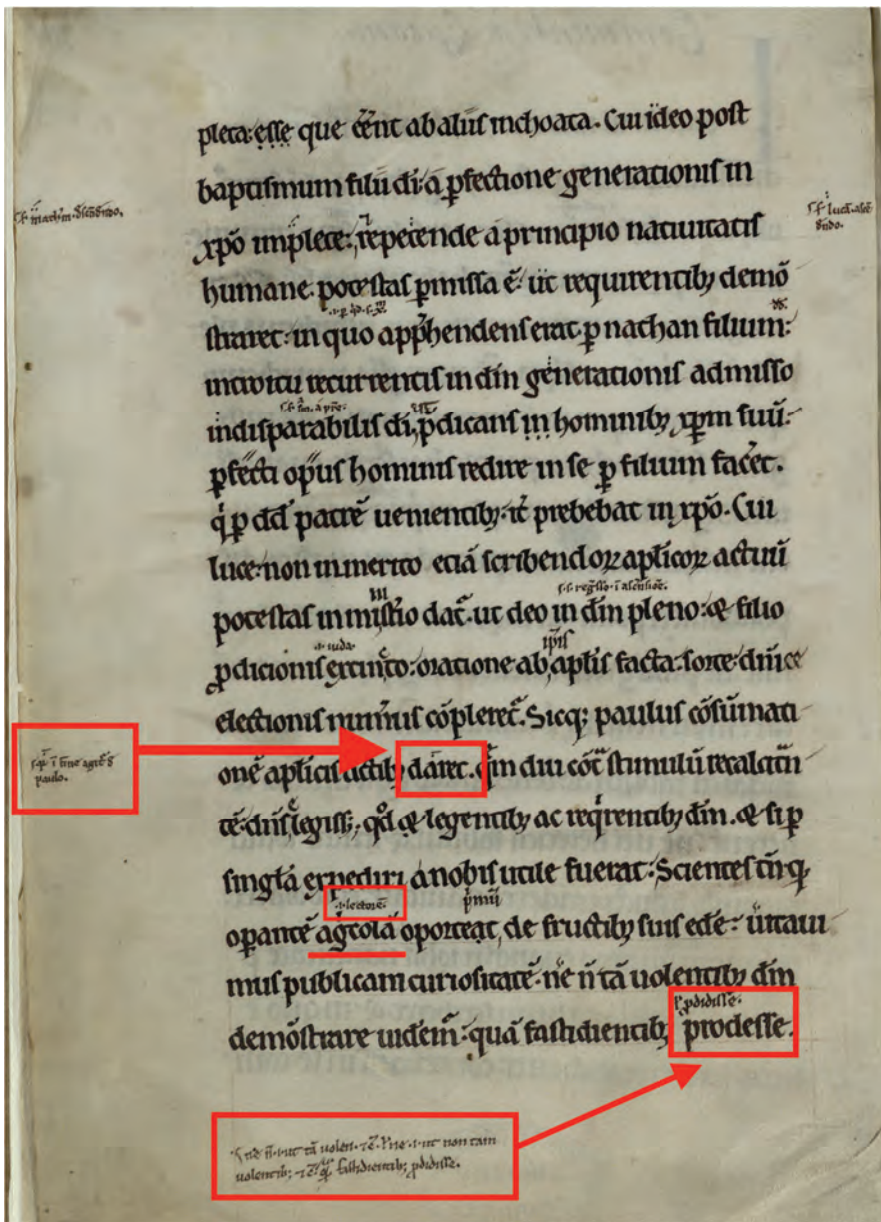 pleta: esse que ēēnt ab aliis inchoata. Cui ideo post
baptismum filii dī: a ꝑfectione generationis in
s. s. lucā. ascē
dēndo.
xp̄o implete: repetende a principio natiuitatis
humane potestas ꝑmissa ē. ut requirentibꝫ demō
straret: in quo app̄hendens erat ꝑ nathan filium:
introitu recurrentis in dm̄ generationis admisso
indisparabilis dī, p̄dicans in hominibꝫ xp̄m suū:
ꝑfecti opus hominis redire in se ꝑ filium facet̄.
q̇ ꝑ dd̄ patrē uenientibꝫ it̄ prebebat in xp̄o. Cui
luce: non inmerito eciā scribendoꝝ apl̄icoꝝ actuū
potestas in mist̄io dat̄. ut deo in dm̄ pleno: & filio
.i. iuda. ip̄is
ꝑdicionis extincto: oratione ab apl̄is facta: sorte dn̄ice
electionis num̄us cōpleret̄. Sicqꝫ paulus cōsūmati
paulo.
onē apl̄icis actibꝫ daret. qm̄ diu cōt̄ stimulū recalcit̄n
tē: dn̄s legiss̄; qd̄ & legentibꝫ ac req̇rentibꝫ dm̄. & si ꝑ
singl̄a expediri a nobis utile fuerat: Scientes tn̄ q
.i. lectorē. p̄mū
oꝑantē ag̓colā oporteat, de fructibꝫ suis edē: uitaui
mus publicam curiositatē. ne n̄ tā uolentibꝫ dm̄
ꝑdidisse.
demōstrare uidem̄: quā fastidientibꝫ prodesse.
ne n̄. i. ut tā uolen. ⁊c̄. ne. i. ut non tam
uolentibꝫ ⁊c̄ fastidientibꝫ ꝑdidisse.